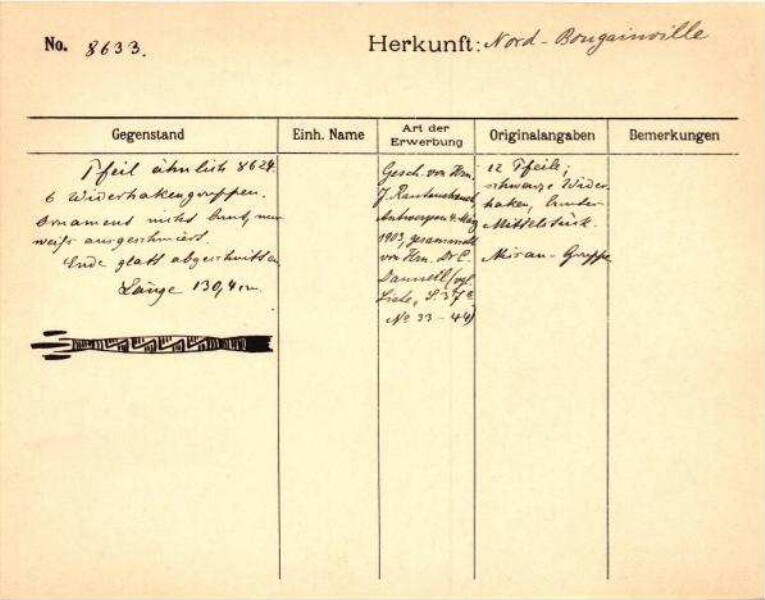 No. 8633.
Herkunft: Nord-Bougainville
Gegenstand
Einh. Name
Art der Erwerbung
Originalangaben
Bemerkungen
Pfeil ähnlich 8624.
6 Widerhakengruppen.
Ornament nicht bunt, nur
weiß ausgeschmiert.
Ende glatt abgeschnitten
Länge 130,4 cm.
Gesch. von Hrn.
J. Rautenstrauch,
Antwerpen 4. März
1903, gesammelt
von Hrn. Dr C.
Danneil (vgl.
Liste, S. 37
No 33 - 44)
12 Pfeile;
schwarze Wider-
haken, bunter
Mittelstück.
Gruppe